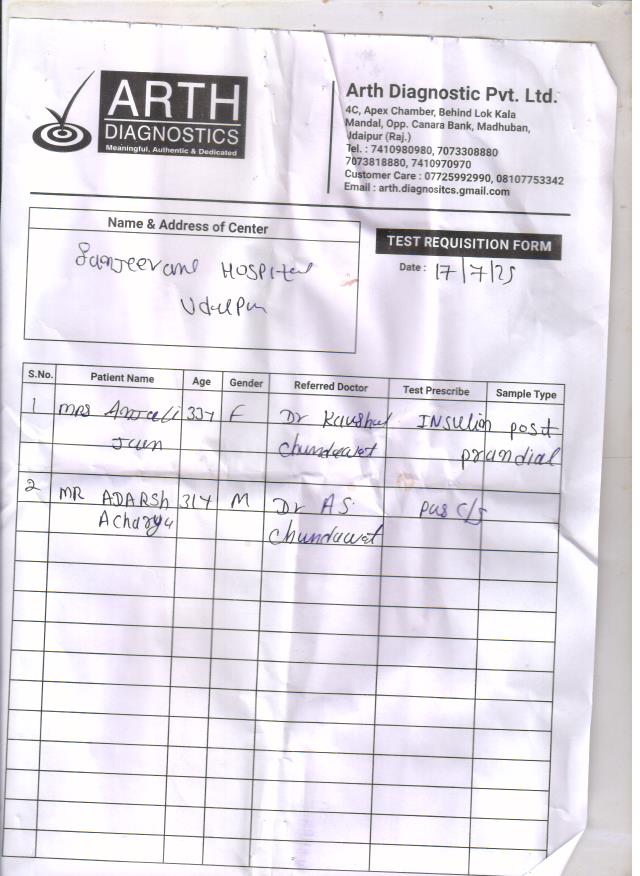 ARTH
DIAGNOSTICS
Meaningful, Authentic & Dedicated
Arth Diagnostic Pvt. Ltd.
4C, Apex Chamber, Behind Lok Kala
Mandal, Opp. Canara Bank, Madhuban,
Udaipur (Raj.)
Tel. : 7410980980, 7073308880
7073818880, 7410970970
Customer Care : 07725992990, 08107753342
Email : arth.diagnositcs.gmail.com
Name & Address of Center
Sanjeevani HOSPITAL
Udaipur
TEST REQUISITION FORM
Date : 17/7/25
S.No. Patient Name Age Gender Referred Doctor Test Prescribe Sample Type
1 MRS Anjali 33Y F Dr Kaushal INSULIN post
Jain Chundawat prandial
2 MR ADARSH 31Y M Dr A.S. pus c/s
Acharya Chundawat